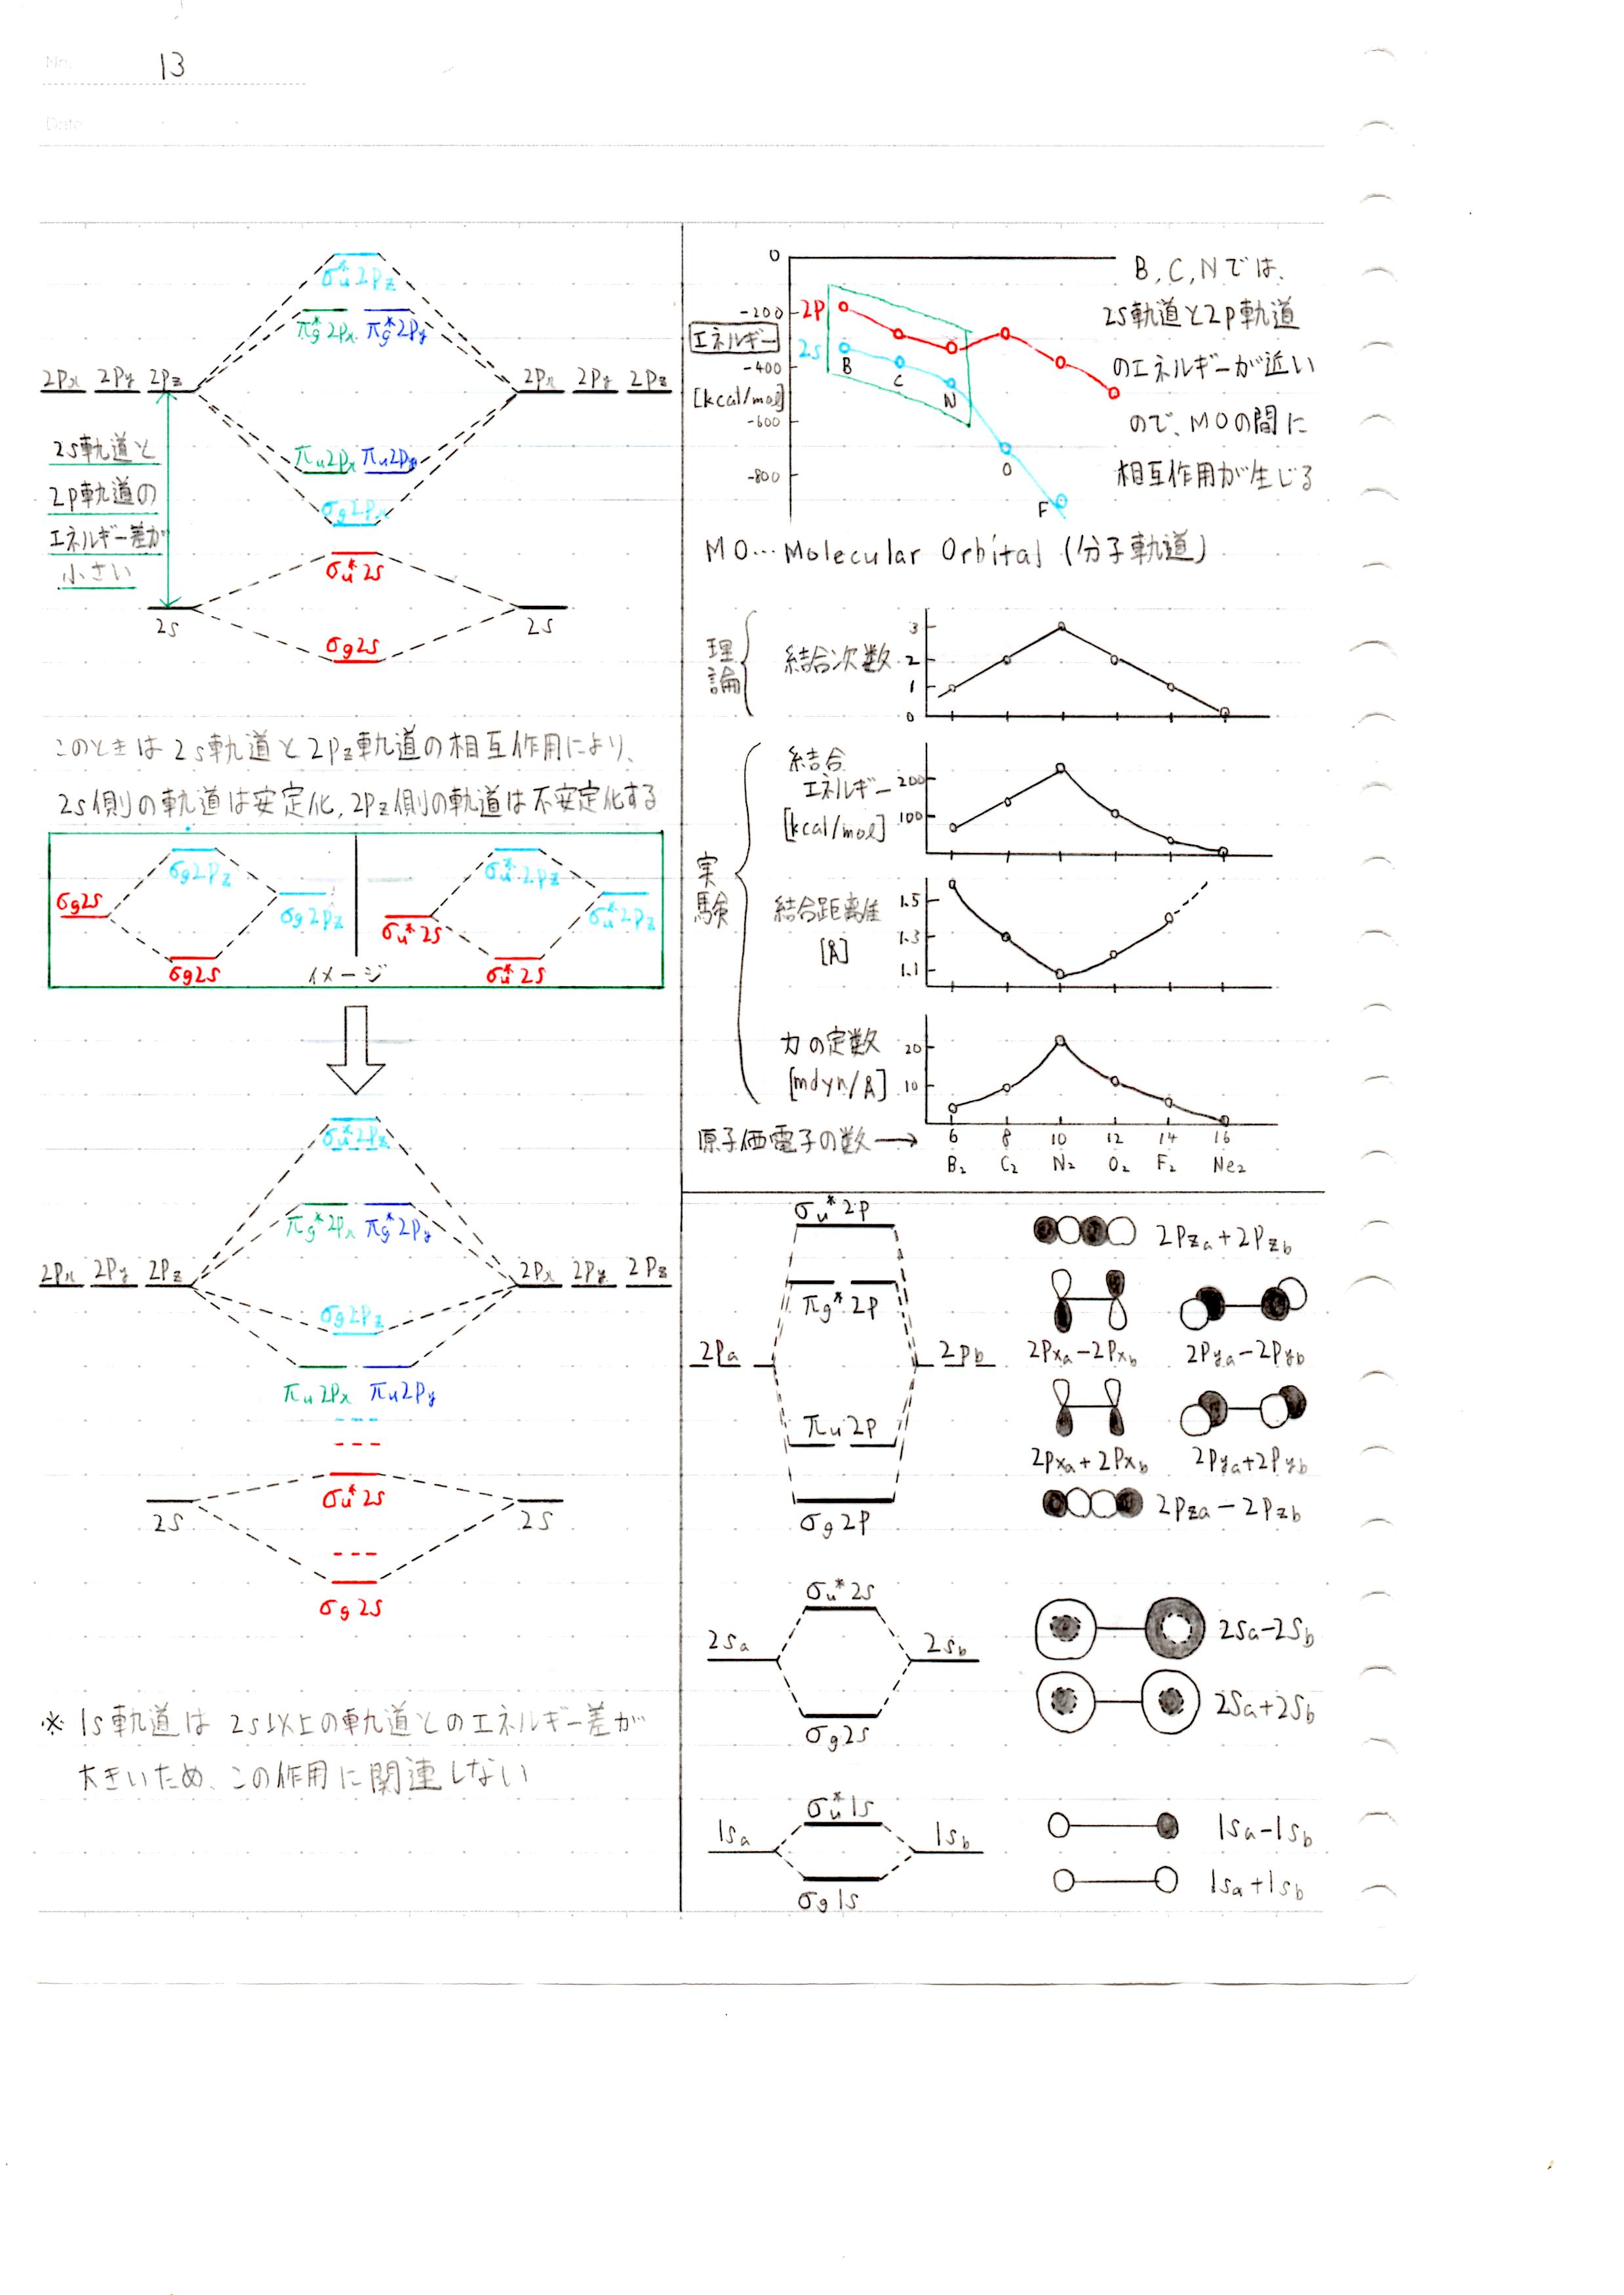 No. 13
Date
σu*2Pz
πg*2Px πg*2Py
2Px 2Py 2Pz
2Px 2Py 2Pz
πu2Px πu2Py
σg2Px
σu*2s
2s
2s
σg2s
2s軌道と
2p軌道の
エネルギー差が
小さい
このときは2s軌道と2Pz軌道の相互作用により、
2s側の軌道は安定化,2Pz側の軌道は不安定化する
σg2Pz
σg2s
σg2Pz
σg2s
イメージ
σu*2Pz
σu*2s
σu*2Pz
σu*2s
σu*2Pz
πg*2Px πg*2Py
2Px 2Py 2Pz
2Px 2Py 2Pz
σg2Pz
πu2Px πu2Py
σu*2s
2s
2s
σg2s
※1s軌道は2s以上の軌道とのエネルギー差が
大きいため、この作用に関連しない
0
-200
-400
-600
-800
エネルギー
[kcal/mol]
2P
2s
B
C
N
O
F
B,C,Nでは、
2s軌道と2p軌道
のエネルギーが近い
ので、MOの間に
相互作用が生じる
MO…Molecular Orbital(分子軌道)
理論
結合次数
3
2
1
0
実験
結合
エネルギー
[kcal/mol]
200
100
結合距離
[Å]
1.5
1.3
1.1
力の定数
[mdyn/Å]
20
10
原子価電子の数→
6 8 10 12 14 16
B2 C2 N2 O2 F2 Ne2
σu*2P
πg*2P
2Pa
2Pb
πu2P
σg2P
2Pza+2Pzb
2Pxa-2Pxb 2Pya-2Pyb
2Pxa+2Pxb 2Pya+2Pyb
2Pza-2Pzb
σu*2s
2sa
2sb
σg2s
2sa-2sb
2sa+2sb
σu*1s
1sa
1sb
σg1s
1sa-1sb
1sa+1sb